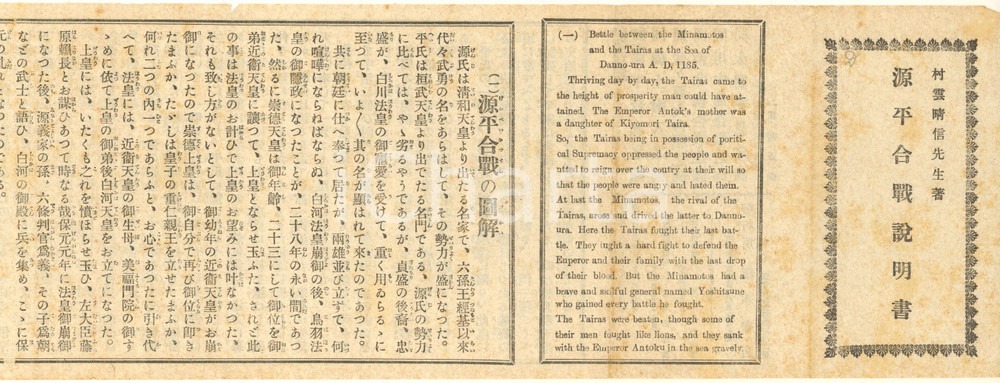 村雲晴信先生著
源平合戰說明書
(一) Bettle between the Minamotos
and the Tairas at the Sea of
Danno-ura A. D, 1185.
Thriving day by day, the Tairas came
to the height of prosperity man could have at-
tained. The Emperor Antok's mother was
a daughter of Kiyomori Taira.
So, the Tairas being in possession of poriti-
cal Supremacy oppressed the people and wa-
nted to reign over the coutry at their will so
that the people were angry and hated them.
At last the Minamotos, the rival of the
Tairas, arose and drived the latter to Danno-
ura. Here the Tairas fought their last bat-
tle. They ught a hard fight to defend the
Emperor and their family with the last drop
of their blood. But the Minamotos had a
breave and skilful general named Yoshitsune
who gained every battle he fought.
The Tairas were beaten, though some of
their men fought like lions, and they sank
with the Emperor Antoku in the sea gravely.
(一)源平合戰の圖解
源氏は清和天皇より出たる名家で、六孫王經基以來
代々武勇の名をあらはして、その勢力が盛になつた。
平氏は桓武天皇より出でたる名門である、源氏の勢力
に比べては、やゝ劣るやうであるが、貞盛の後裔、忠
盛が、白川法皇の御寵愛を受けて、重く用ゐらるゝに
至つて、いよ〳〵其の名が顯はれて來たのであつた。
共に朝廷に仕へ奉つて居たが、兩雄並び立すで、何
れ喧嘩にならねばならぬ、白河法皇崩御の後、鳥羽法
皇の御隱政になつたことが、二十八年の永い間であつ
た、然るに崇德天皇は御年齡、二十三にして御位を御
弟近衛天皇に讓つて、上皇とならせ玉ふた、されど此
の事は法皇のお計ひで上皇のお望みには叶なかつた、
それも致し方がないとして、御幼年の近衛天皇がお崩
御になつたので崇德上皇は、御自分で再び御位に即き
たまふか、たゞしは皇子の重仁親王を立せたまふか、
何れ二つの內一つであらふと、お心であつたに引き代
へて、法皇には、近衛天皇の御生母、美福門院の御す
ゝめに依て上皇の御弟後白河天皇をお立てになつた。
上皇には、いたくも之れを憤ほらせ玉ひ、左大臣藤
原賴長とお謀ひあつて時なる哉保元元年に法皇御崩御
になつた後、源義家の孫、六條判官爲義、その子爲朝
などの武士と語ひ、白河の御殿に兵を集め、こゝに保